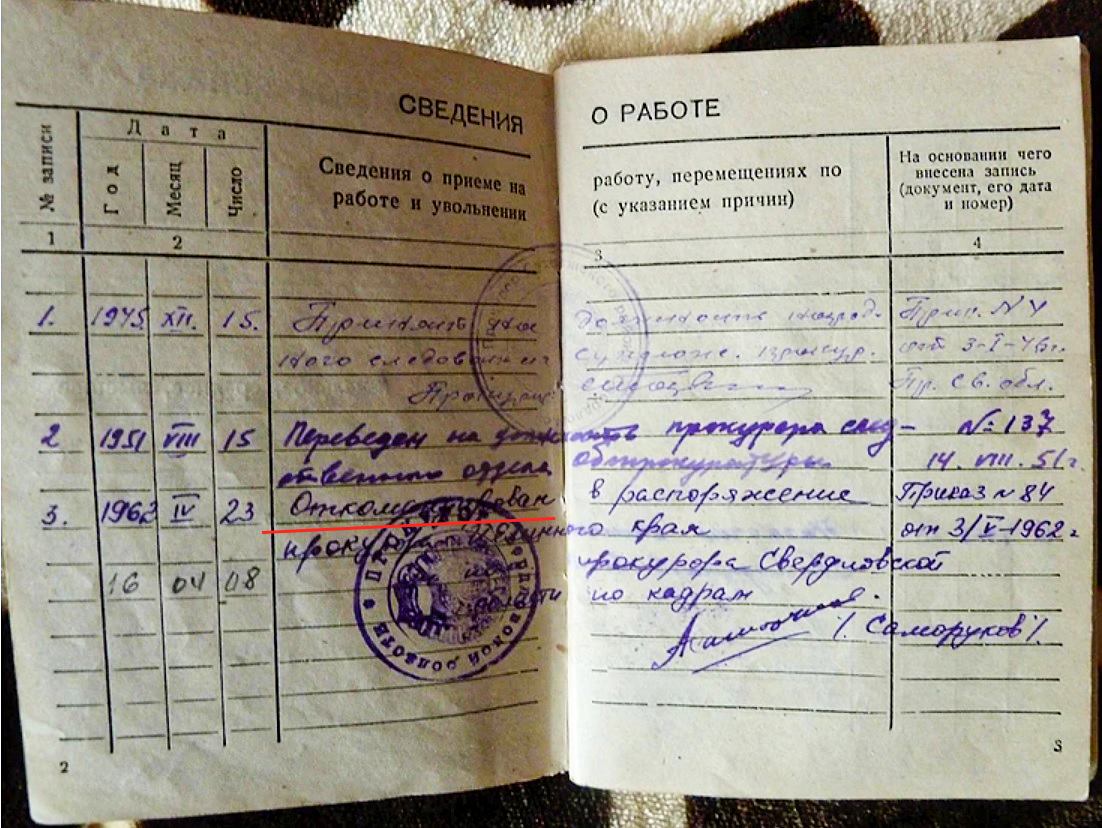 СВЕДЕНИЯ О РАБОТЕ
№ записи
Дата
Год
Месяц
Число
Сведения о приеме на работу, перемещениях по
работе и увольнении (с указанием причин)
На основании чего
внесена запись
(документ, его дата
и номер)
1 2 3 4
1. 1945 XII. 15. Принят на должность народ. Прик. N 4
ного следователя от 3-I-46г.
Пр. Св. обл.
2 1951 VIII 15 Переведен на должность прокурора след- № 137
ственного отдела облпрокуратуры 14. VIII. 51г.
3. 1962 IV 23 Откомандирован в распоряжение Приказ № 84
прокурора Целинного края от 3/V-1962г
прокурора Свердловской
16 04 08 области по кадрам
/Саморуков/.
2 3